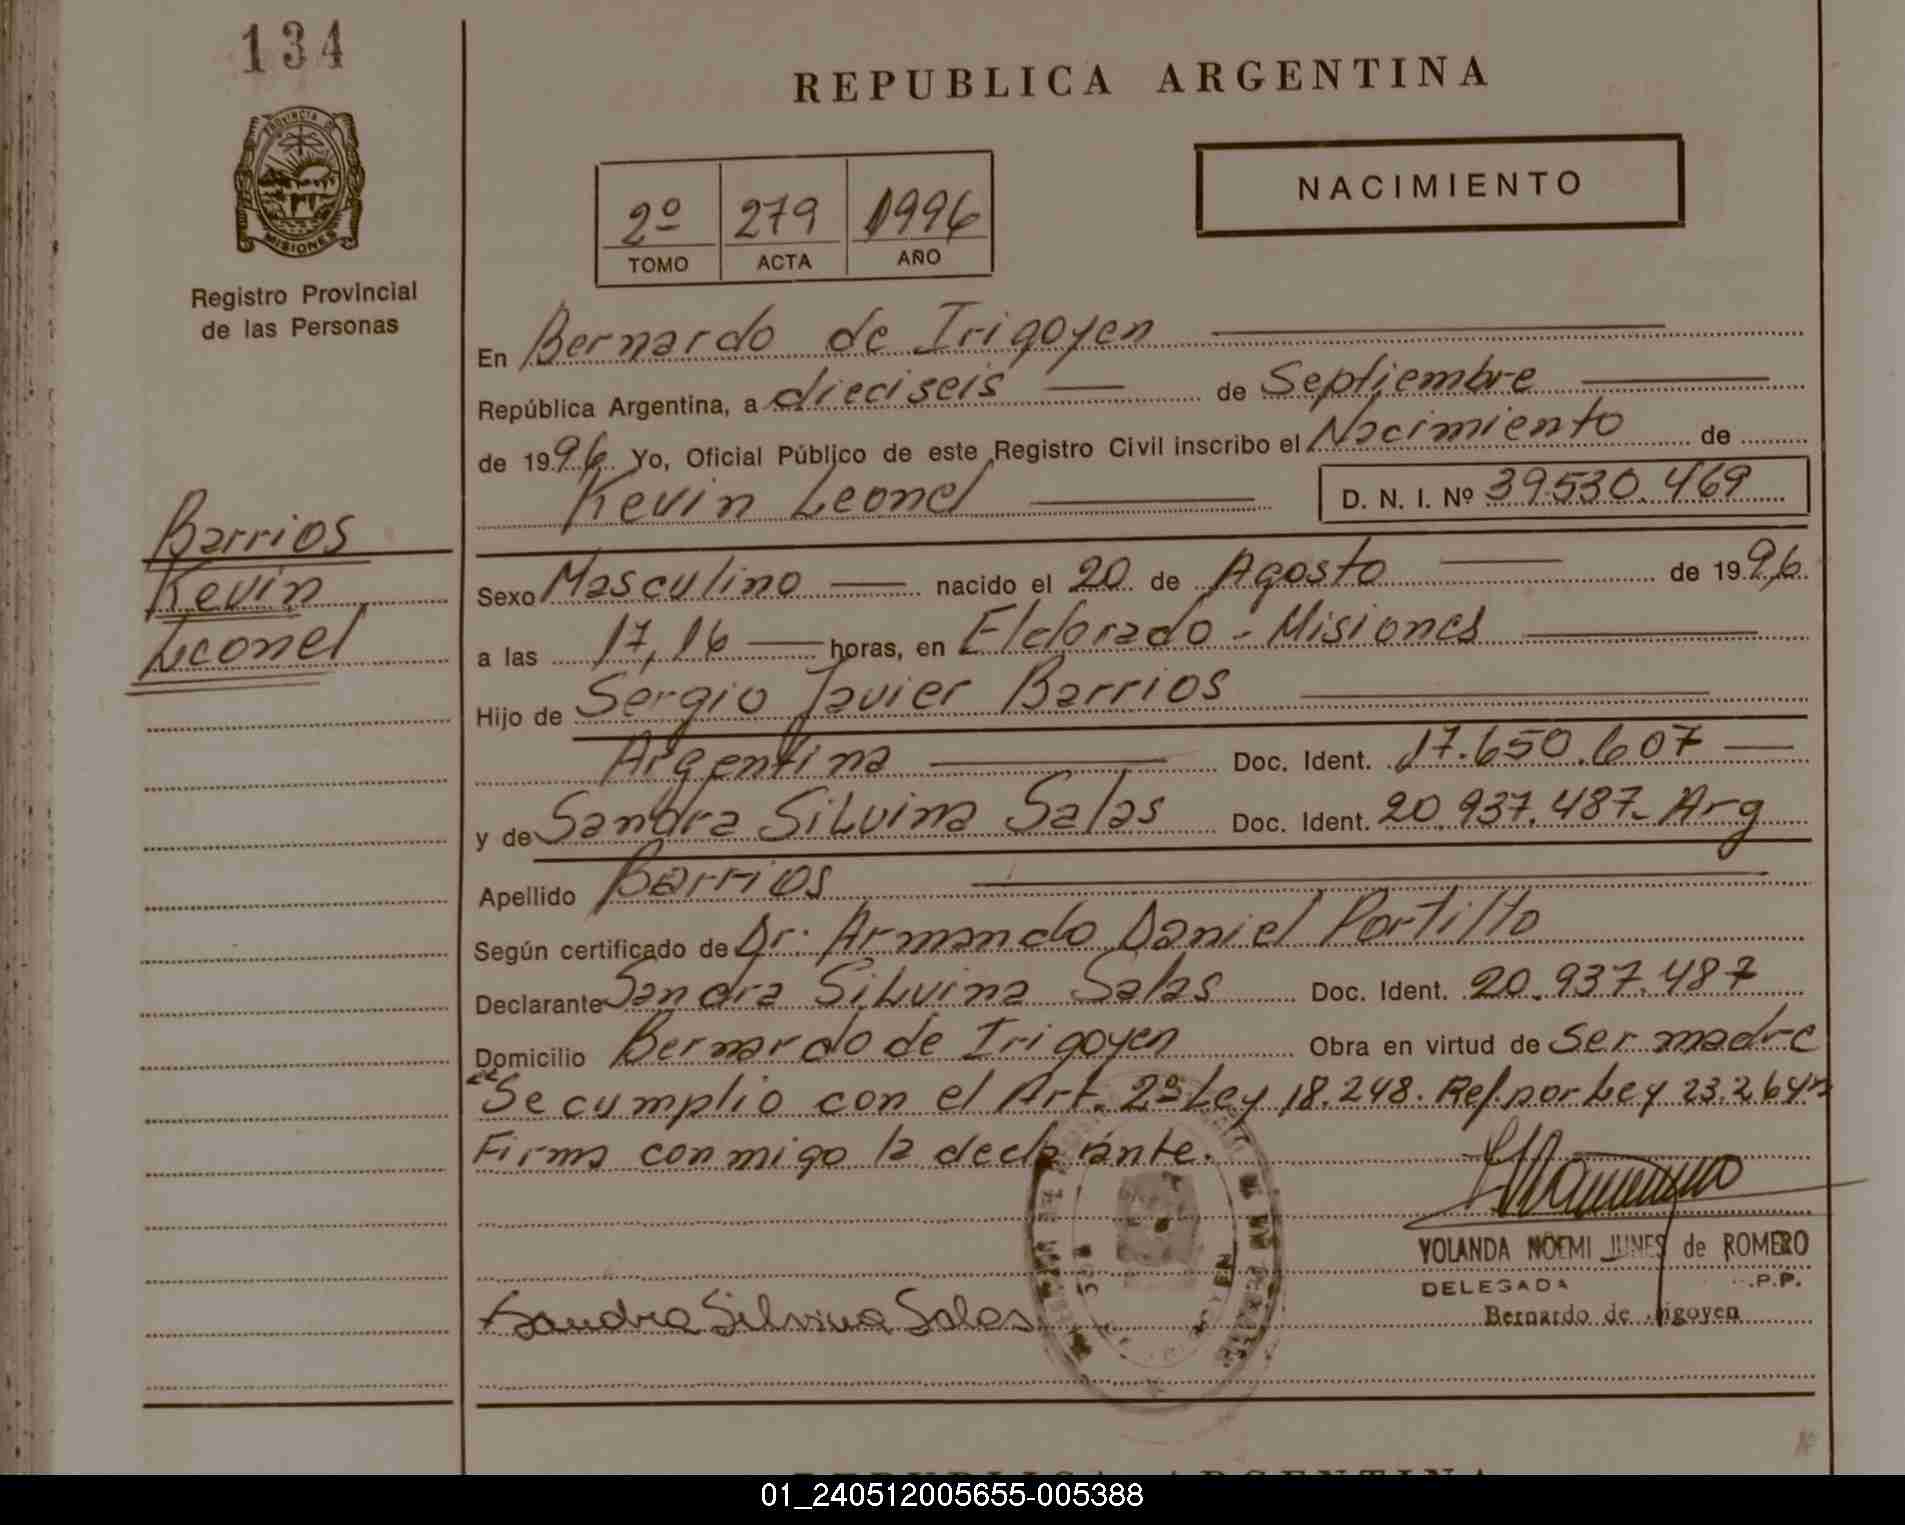 134
REPUBLICA ARGENTINA
PROVINCIA DE
MISIONES
Registro Provincial
de las Personas
NACIMIENTO
2º 279 1996
TOMO ACTA AÑO
En Bernardo de Irigoyen
República Argentina, a dieciseis de Septiembre
de 1996 Yo, Oficial Público de este Registro Civil inscribo el Nacimiento de
Kevin Leonel D. N. I. Nº 39.530.469
Barrios
Kevin
Leonel
Sexo Masculino nacido el 20 de Agosto de 1996
a las 17,16 horas, en Eldorado - Misiones
Hijo de Sergio Javier Barrios
Argentina Doc. Ident. 17.650.607
y de Sandra Silvina Salas Doc. Ident. 20.937.487- Arg
Apellido Barrios
Según certificado de Dr. Armando Daniel Portillo
Declarante Sandra Silvina Salas Doc. Ident. 20.937.487
Domicilio Bernardo de Irigoyen Obra en virtud de Ser madre
"Se cumplio con el Art. 2º Ley 18.248. Ref. por Ley 23.264"
Firma conmigo la declarante.
YOLANDA NOEMI JUNES de ROMERO
DELEGADA .P.P.
Bernardo de Irigoyen
Sandra Silvina Salas
REPUBLICA ARGENTINA
01_240512005655-005388